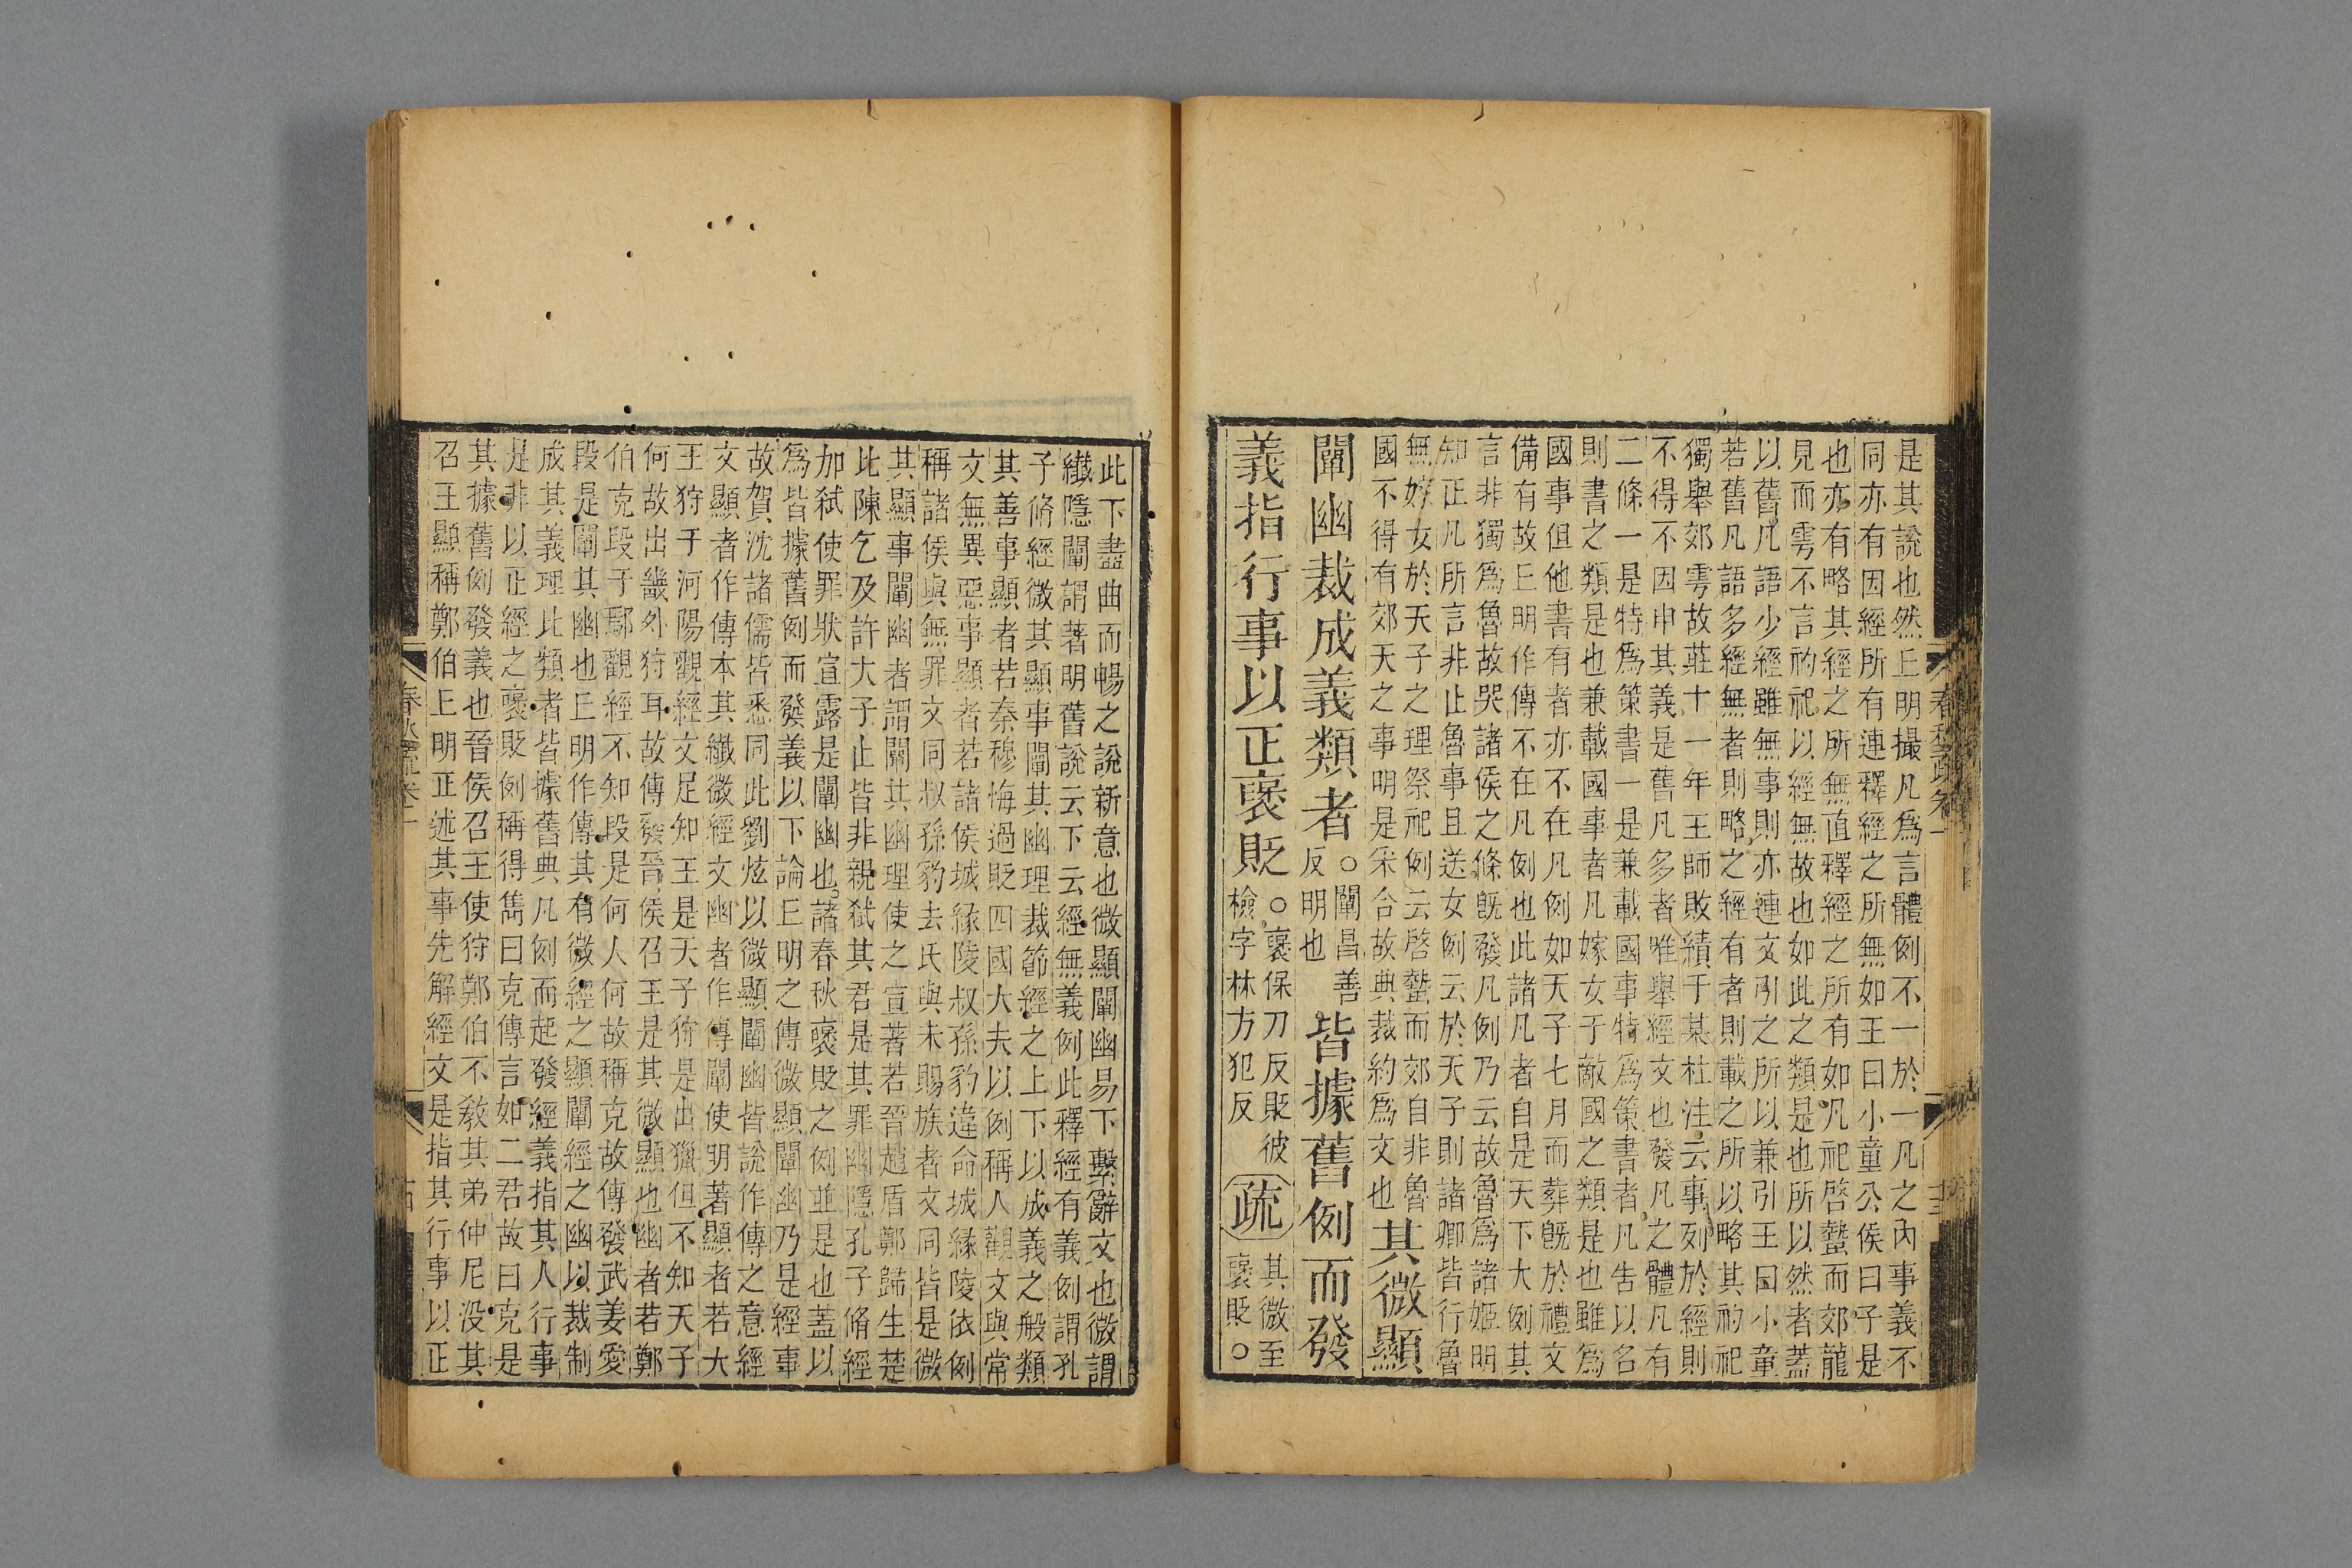 是其說也然丘明撮凡爲言體例不一於一凡之內事義不
同亦有因經所有連釋經之所無如王曰小童公侯曰子是
也亦有略其經之所無直釋經之所有如凡祀啓蟄而郊龍
見而雩不言礿祀以經無故也如此之類是也所以然者蓋
以舊凡語少經雖無事則亦連文引之所以兼引王曰小童
若舊凡語多經無者則略之經有者則載之所以略其礿祀
獨舉郊雩故莊十一年王師敗績于某杜注云事列於經則
不得不因申其義是舊凡多者唯舉經文也發凡之體凡有
二條一是特爲策書一是兼載國事特爲策書者凡告以名
則書之類是也兼載國事者凡嫁女于敵國之類是也雖爲
國事但他書有者亦不在凡例如天子七月而葬既於禮文
備有故丘明作傳不在凡例也此諸凡者自是天下大例其
言非獨爲魯故哭諸侯之條既發凡例乃云故魯爲諸姬明
知正凡所言非止魯事且送女例云於天子則諸卿皆行魯
無嫁女於天子之理祭祀例云啓蟄而郊自非魯
國不得有郊天之事明是采合故典裁約爲文也 其微顯
闡幽裁成義類者 ○闡昌善反明也 皆據舊例而發
義指行事以正襃貶 ○襃保刀反貶彼檢字林方犯反 疏 其微至襃貶○
春秋疏卷一
此下盡曲而暢之說新意也微顯闡幽易下繫辭文也微謂
纖隱闡謂著明舊說云下云經無義例此釋經有義例謂孔
子脩經微其顯事闡其幽理裁節經之上下以成義之般類
其善事顯者若秦穆悔過貶四國大夫以例稱人觀文與常
文無異惡事顯者若諸侯城緣陵叔孫豹違命城緣陵依例
稱諸侯與無罪文同叔孫豹去氏與未賜族者文同皆是微
其顯事闡幽者謂闡其幽理使之宣著若晉趙盾鄭歸生楚
比陳乞及許大子止皆非親弒其君是其罪幽隱孔子脩經
加弒使罪狀宣露是闡幽也諸春秋襃貶之例並是也蓋以
爲皆據舊例而發義以下論丘明之傳微顯闡幽乃是經事
故賀沈諸儒皆悉同此劉炫以微顯闡幽皆說作傳之意經
文顯者作傳本其纖微經文幽者作傳闡使明著顯者若大
王狩于河陽觀經文足知王是天子狩是出獵但不知天子
何故出畿外狩耳故傳發晉侯召王是其微顯也幽者若鄭
伯克段于鄢觀經不知段是何人何故稱克故傳發武姜愛
段是闡其幽也丘明作傳其有微經之顯闡經之幽以裁制
成其義理比類者皆據舊典凡例而起發經義指其人行事
是非以正經之襃貶例稱得雋曰克傳言如二君故曰克是
其據舊例發義也晉侯召王使狩鄭伯不教其弟仲尼沒其
召王顯稱鄭伯丘明正述其事先解經文是指其行事以正